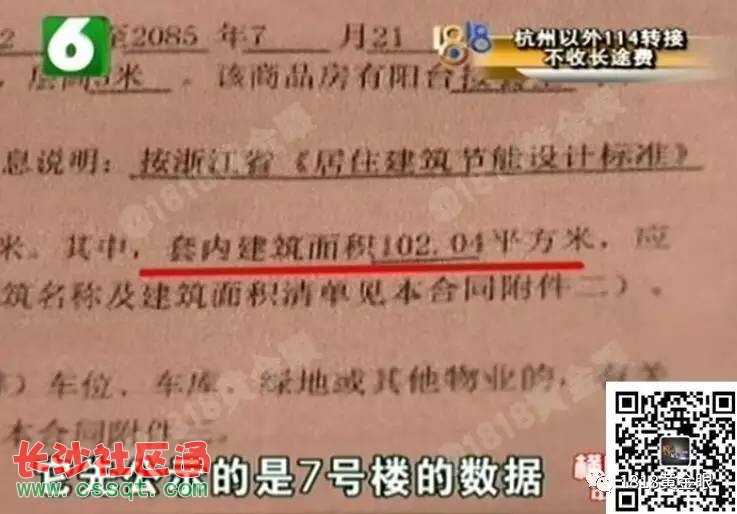 6
1818
杭州以外114转接
不收长途费
2 至2085 年7 月21
米 。该商品房有阳台
息说明：按浙江省《居住建筑节能设计标准》
米。其中，套内建筑面积102.04平方米，应
筑名称及建筑面积清单见本合同附件二）。
）车位、车库、绿地或其他物业的，有关
本合同附件三。
的是7号楼的数据
长沙社区通
www.cssqt.com
@1818黄金眼
@1818黄金眼
1818黄金眼